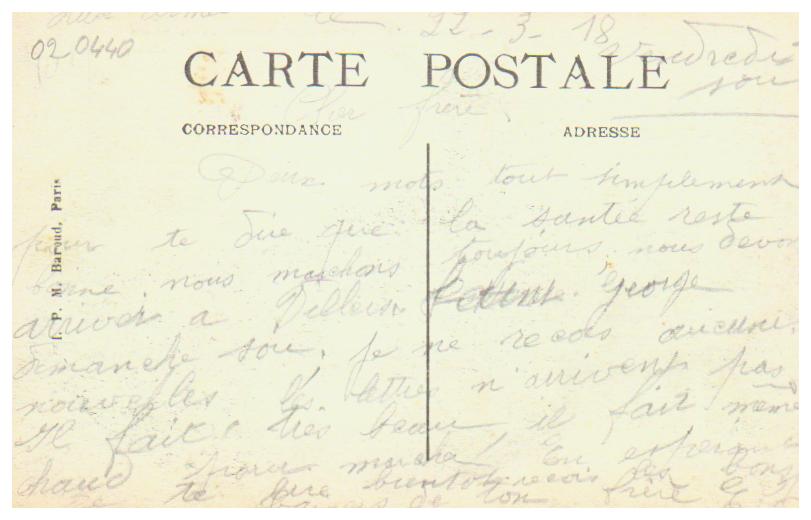 22-3-18
020440
Vendredi
soir
CARTE POSTALE
Cher frère
CORRESPONDANCE
ADRESSE
Deux mots tout simplement
pour te dire que la santée reste
bonne nous marchons toujours nous devons
arriver a George
dimanche soir. Je ne recois aucune
nouvelles les lettres n'arrivent pas
Il fait très beau il fait même
chaud pour marcher! En esperant
te lire bientot recois les bons
baisers de ton frère
I. P. M. Baroud, Paris